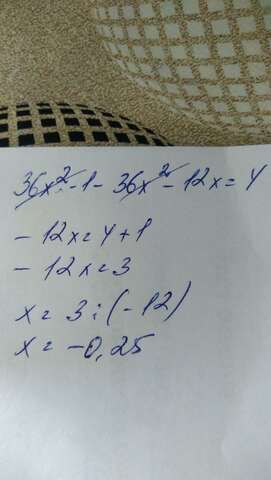 36x² - 1 - 36x² - 12x = 4
- 12x = 4 + 1
- 12x = 3
x = 3 : (-12)
x = -0,25